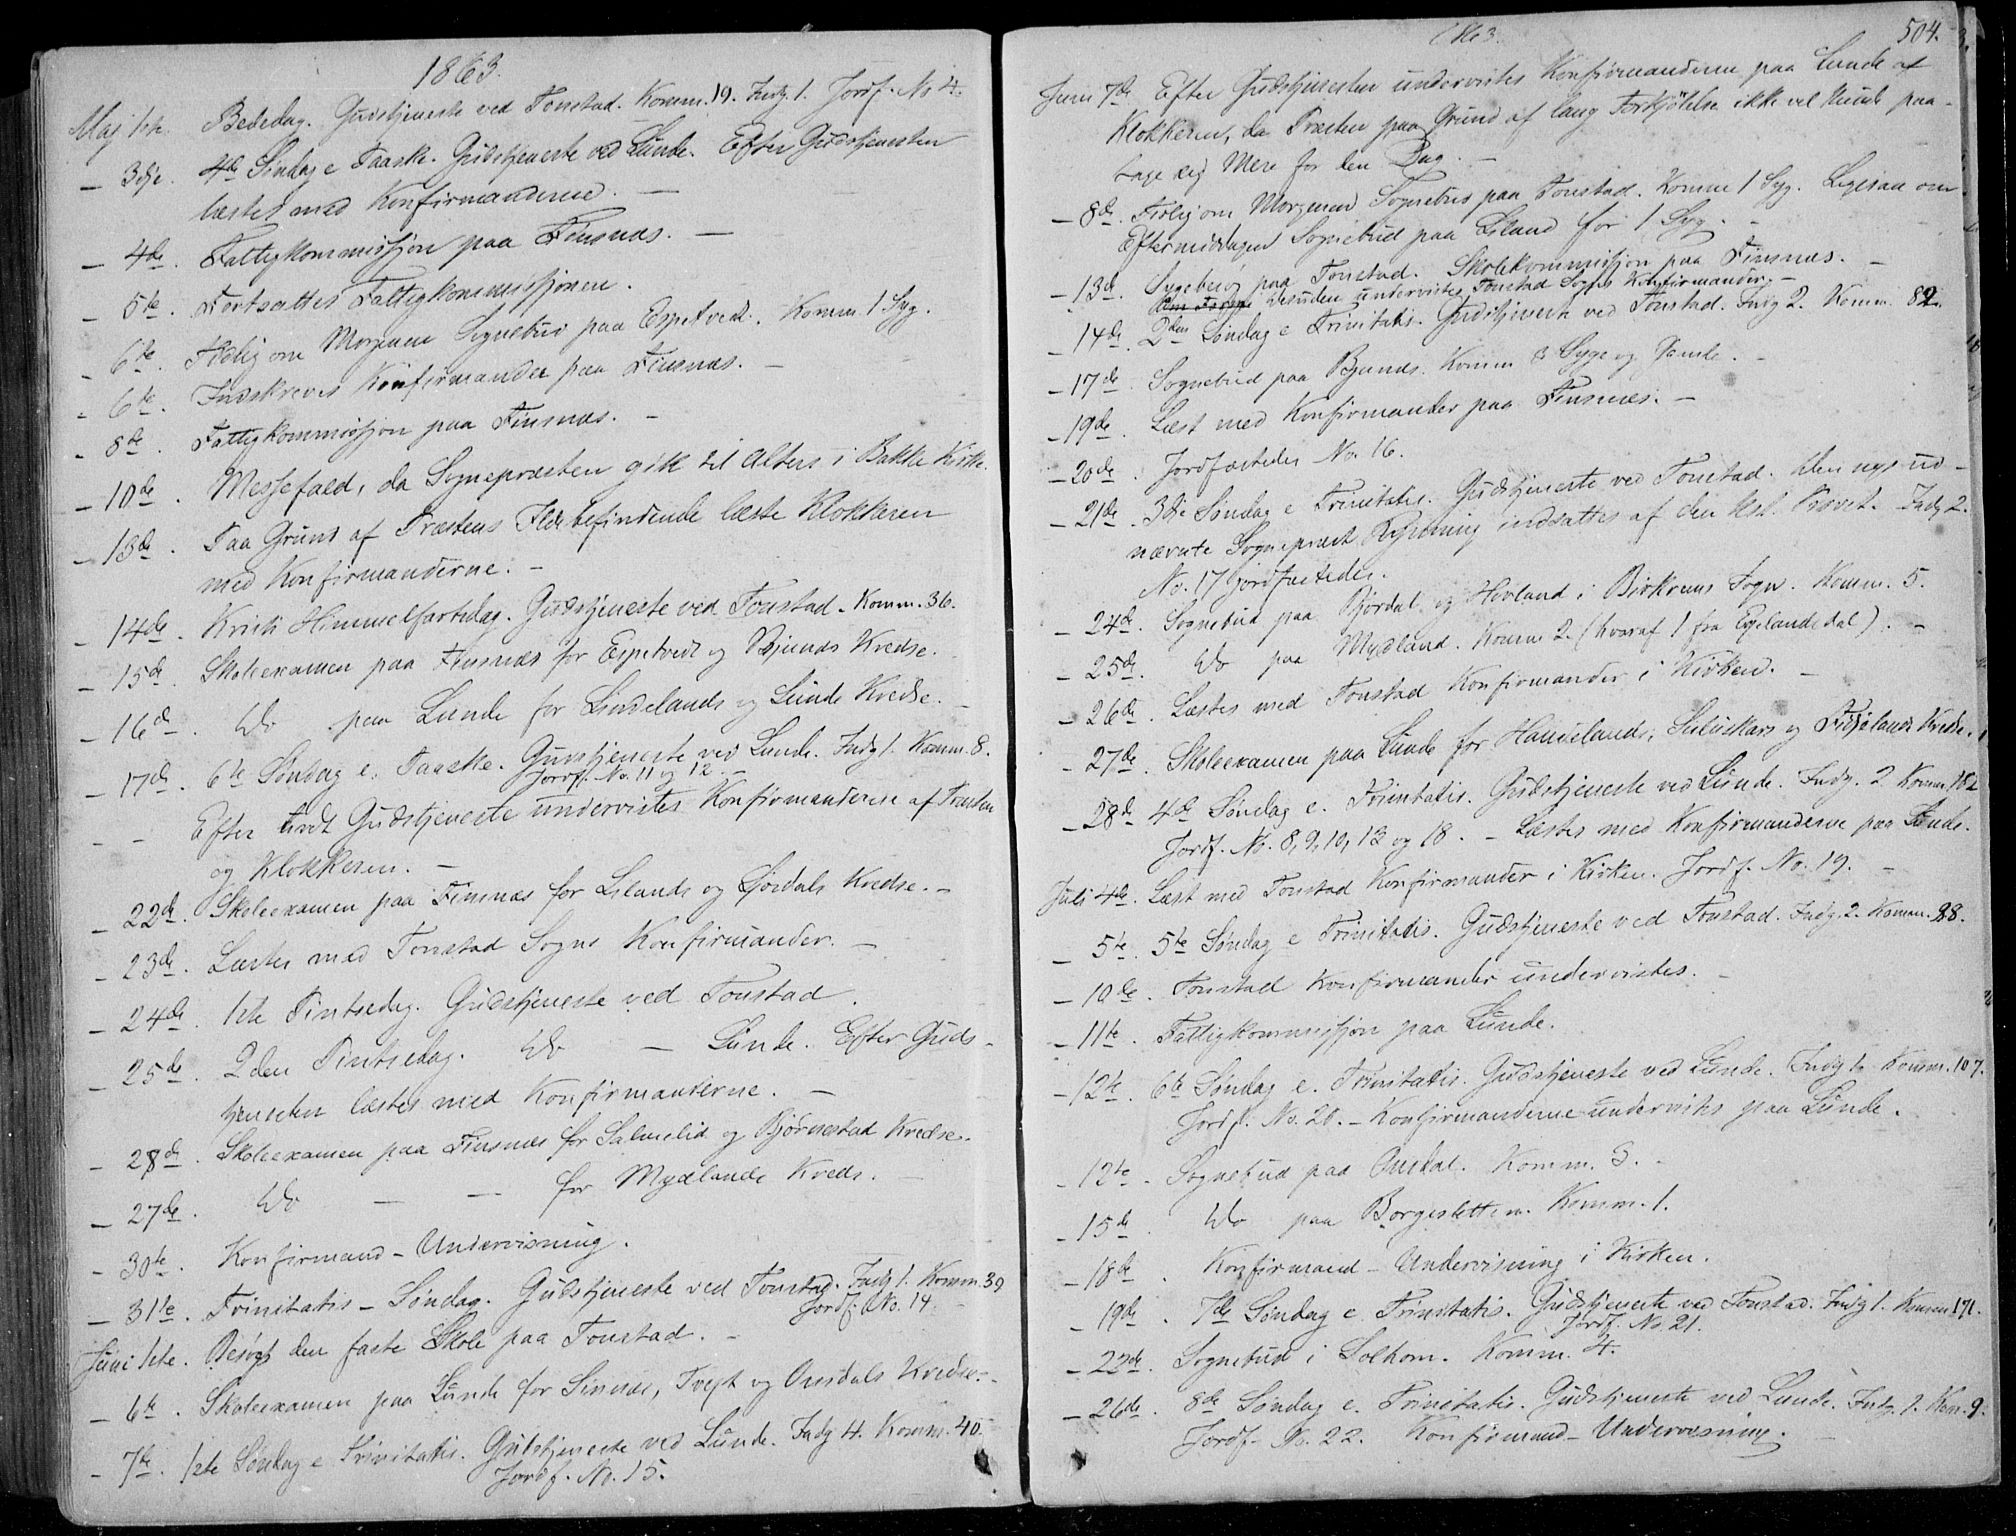 1863.
Maj 1ste. Bededag. Gudstjeneste ved Tonstad. Komm. 19. Indg. 1. Jordf. No 4.
— 3dje. 4de Søndag e Paaske. Gudstjeneste ved Lunde. Efter Gudstjenesten
læstes med Konfirmanderne. —
— 4de. Fattigkommissjon paa Finsnæs. —
— 5te. Fortsattes Fattigkommissjonen.
— 6te. Tidlig om Morgenen Sognebud paa Espetved. Komm. 1 Syg.
— 6te. Indskreves Konfirmander paa Finsnæs. —
— 8de. Fattigkommissjon paa Finsnæs. —
— 10de. Messefald, da Sognepræsten gik til Alters i Bakke Kirke.
— 13de. Paa Grund af Præstens Ildebefindende læste Klokkeren
med Konfirmanderne. —
— 14de. Kristi Himmelfartsdag. Gudstjeneste ved Tonstad. Komm. 36.
— 15de. Skoleexamen paa Finsnæs for Espetvedt og Bjunæs Kredse.
— 16de. Do paa Lunde for Lindelands og Lunde Kredse. —
— 17de. 6te Søndag e. Paaske. Gudstjeneste ved Lunde. Indg 1. Komm. 8.
Jordf. No. 11 og 12. —
— — Efter endt Gudstjeneste undervistes Konfirmanderne af Præsten
og Klokkeren. —
— 22de. Skoleexamen paa Finsnæs for Lilands og Gjordals Kredse. —
— 23de. Læstes med Tonstad Sogns Konfirmander. —
— 24de. 1ste Pintsedag. Gudstjeneste ved Tonstad.
— 25de. 2den Pintsedag. Do — Lunde. Efter Guds-
tjenesten læstes med Konfirmanterne. —
— 28de. Skoleexamen paa Finsnæs for Salmelid og Bjørnestad Kredse.
— 27de. Do — — for Mydlands Kreds. —
— 30te. Konfirmand-Undervisning.
— 31te. Trinitatis-Søndag. Gudstjeneste ved Tonstad. Indg 1. Komm. 39
Jordf. No. 14. —
Juni 1ste. Besøgt den faste Skole paa Tonstad. —
— 6te. Skoleexamen paa Lunde for Sinnæs, Tvejt og Ousdals Kredse. —
— 7de. 1ste Søndag e Trinitatis. Gudstjeneste ved Lunde. Indg 4. Komm. 40.
Jordf. No. 15.
1863.
504.
Juni 7de. Efter Gudstjenesten undervistes Konfirmanderne paa Lunde af
Klokkeren, da Præsten paa Grund af lang Forkjølelse ikke vel kunde paa-
tage sig Mere for den Dag. —
— 8de. Tidlig om Morgenen Sognebud paa Tonstad. Komm 1 Syg. Ligesaa om
Eftermiddagen Sognebud paa Liland for 1 Syg. —
— 13de. Sygebesøg paa Tonstad. Skolekommission paa Finsnæs. —
desuden undervistes Tonstad Sogns Konfirmander. —
— 14de. 2den Søndag e Trinitatis. Gudstjeneste ved Tonstad. Indg 2. Komm. 82.
— 17de. Sognebud paa Bjunæs. Komm 3 Syge og Gamle. —
— 19de. Læst med Konfirmander paa Finsnæs. —
— 20de. Jordfæstedes No. 16.
— 21de. 3die Søndag e Trinitatis. Gudstjeneste ved Tonstad. Den nys ud-
nævnte Sognepræst indsattes af den kst. Provst. Indg 2.
No. 17 jordfæstedes.
— 24de. Sognebud paa Bjordal og Hovland i Birkrems Sogn. Komm. 5.
— 25de. Do paa Mydland. Komm 2. (hvoraf 1 fra Egelandsdal). —
— 26de. Læstes med Tonstad Konfirmander i Kirken. —
— 27de. Skoleexamen paa Lunde for Haudelands, Suluskars og Fidjelands Kredse.
— 28de 4de Søndag e. Trinitatis. Gudstjeneste ved Lunde. Indg. 2 Komm. 182
Jordf. No. 8, 9, 10, 13 og 18. — Læstes med Konfirmanderne paa Lunde.
Juli 4de. Læst med Tonstad Konfirmander i Kirken. Jordf. No. 19. —
— 5te. 5te Søndag e Trinitatis. Gudstjeneste ved Tonstad. Indg. 2. Komm. 98.
— 10de. Tonstad Konfirmander undervistes. —
— 11te. Fattigkommissjon paa Lunde.
— 12te. 6te Søndag e. Trinitatis. Gudstjeneste ved Lunde. Indg 1. Komm. 107.
Jordf. No. 20. — Konfirmanderne undervistes paa Lunde.
— 12te. Sognebud paa Ousdal. Komm. 3. —
— 15de Do paa Borgesletten. Komm. 1.
— 18de. Konfirmand-Undervisning i Kirken.
— 19de. 7de Søndag e Trinitatis. Gudstjeneste ved Tonstad. Indg 1. Komm 171.
Jordf. No. 21.
— 22de. Sognebud i Solhom. Komm. 4.
— 26de. 8de Søndag e. Trinitatis. Gudstjeneste ved Lunde. Indg. 1. Kom. 9.
Jordf. No. 22. Konfirmand-Undervisning. —